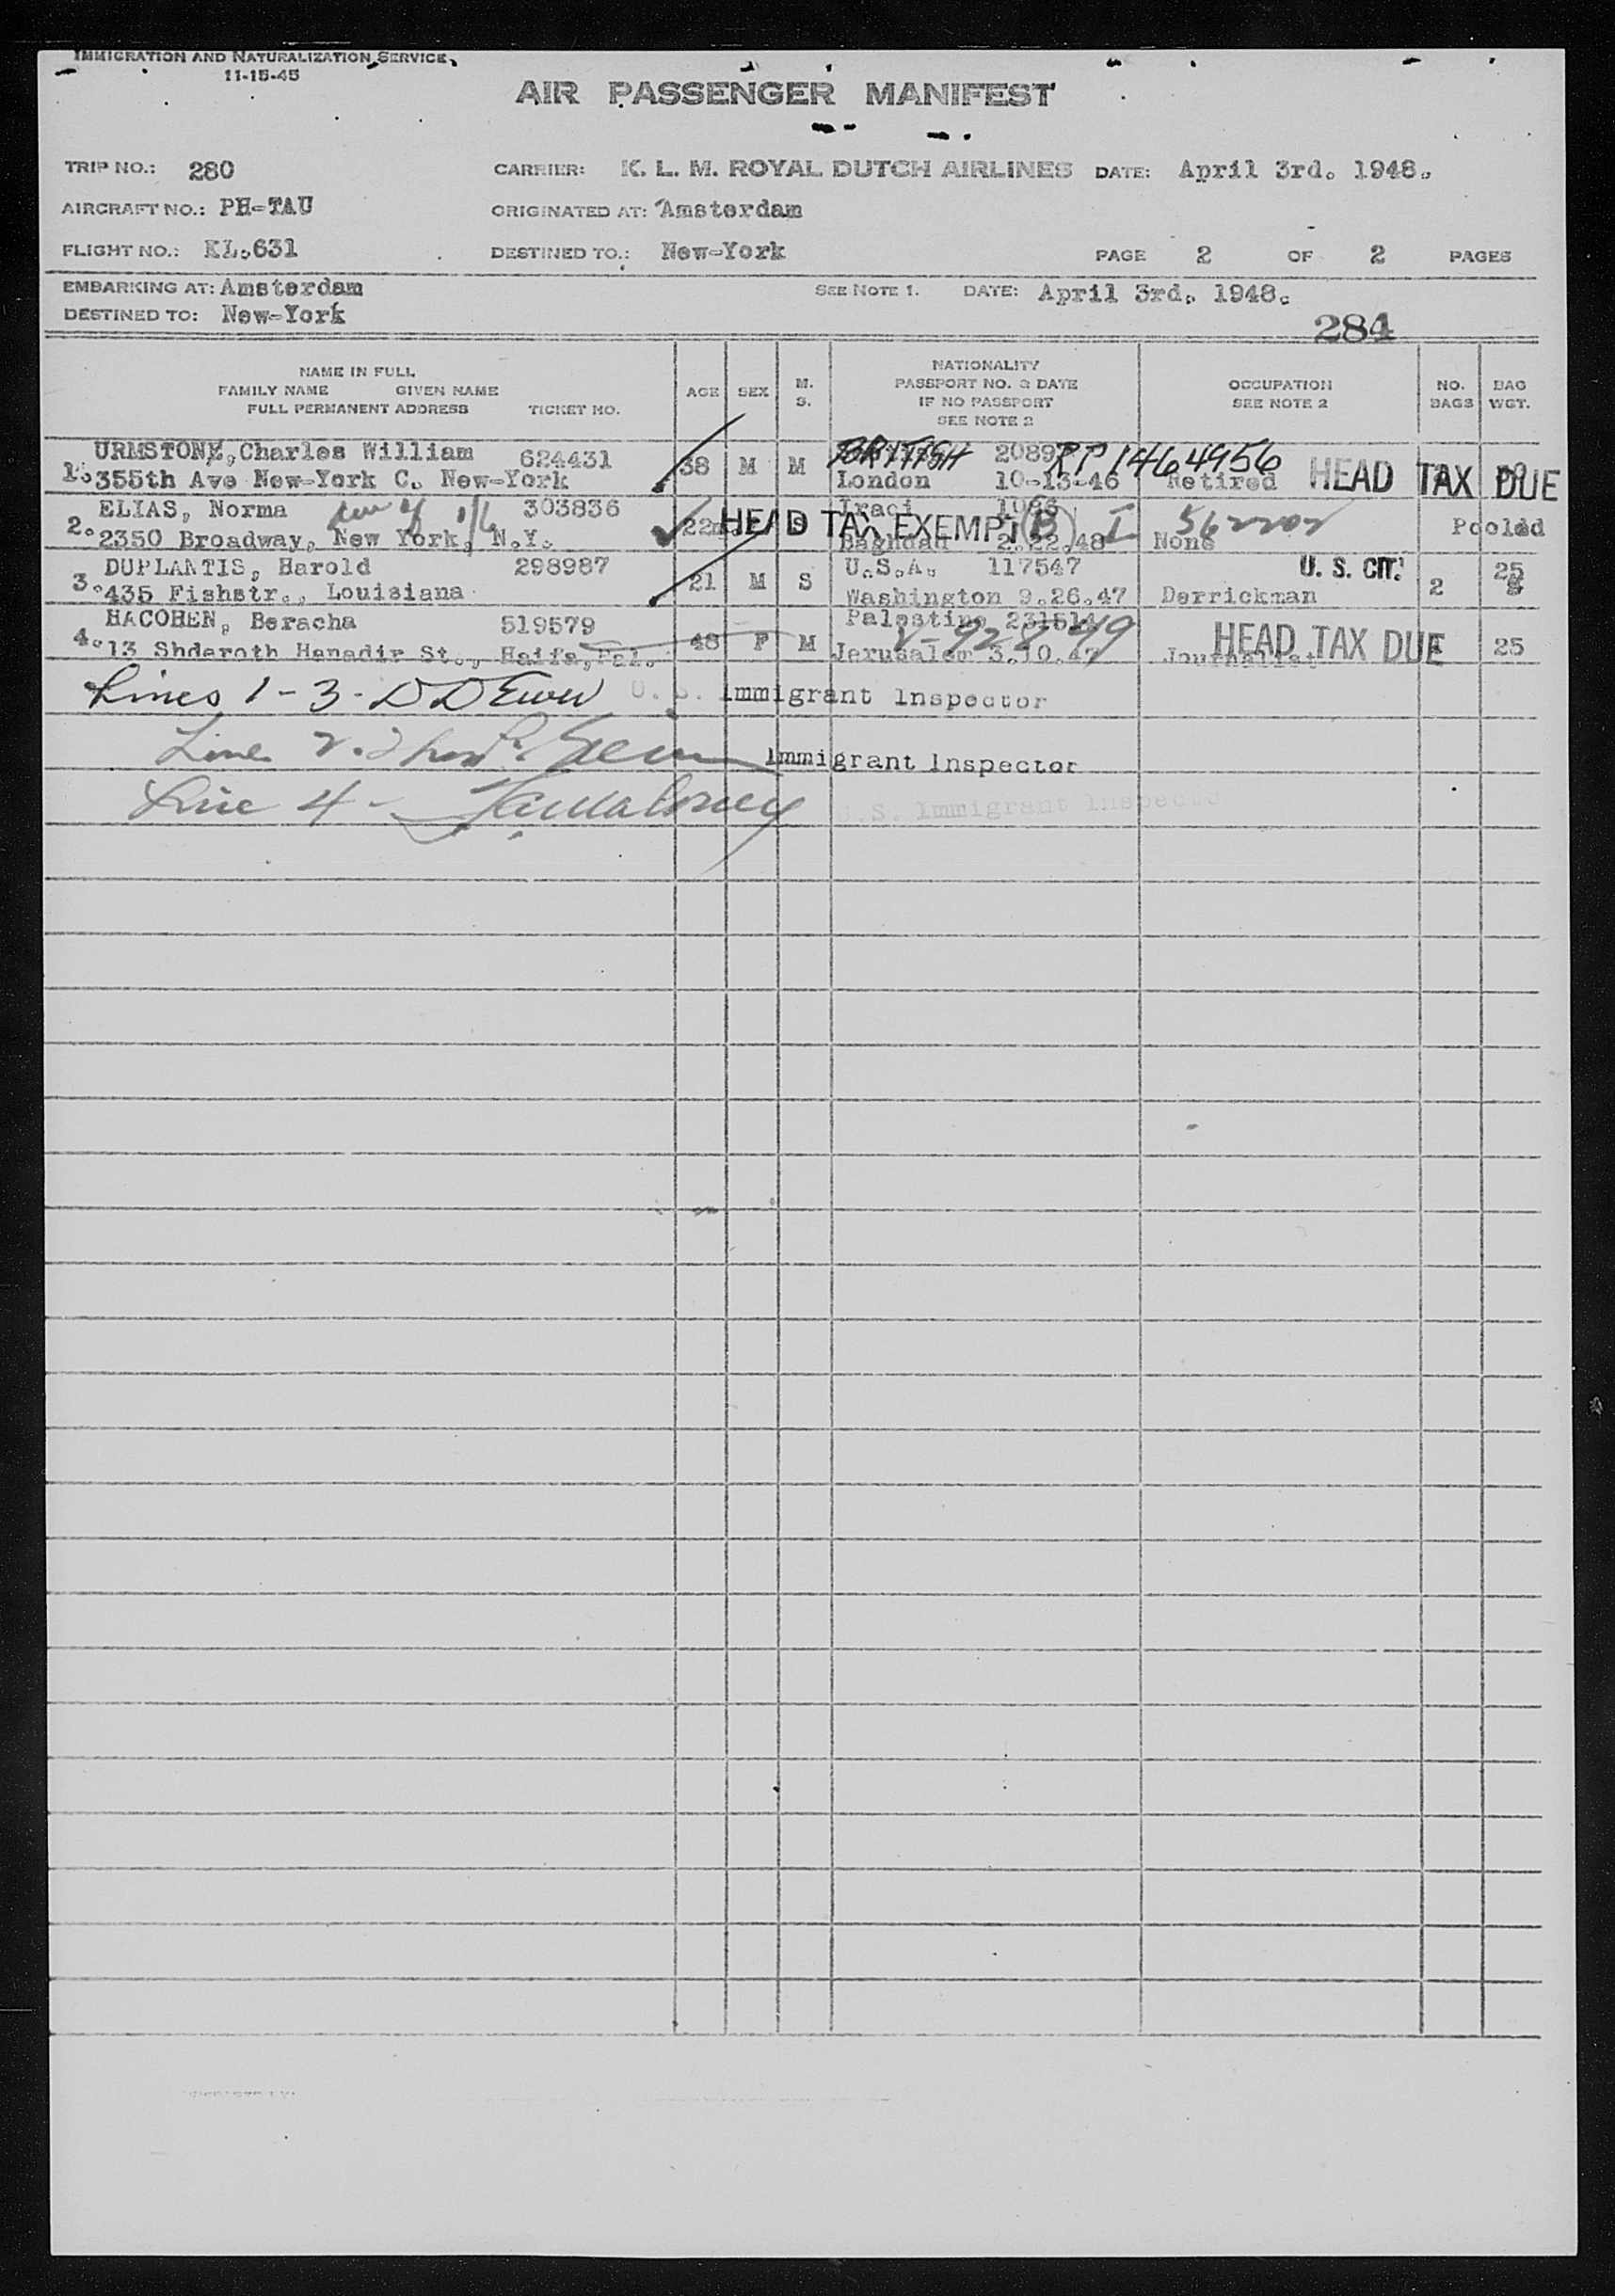 IMMIGRATION AND NATURALIZATION SERVICE
11-15-45
AIR PASSENGER MANIFEST
TRIP NO.: 280 CARRIER: K. L. M. ROYAL DUTCH AIRLINES DATE: April 3rd. 1948.
AIRCRAFT NO.: PH-TAU ORIGINATED AT: Amsterdam
FLIGHT NO.: KL.631 DESTINED TO.: New-York PAGE 2 OF 2 PAGES
EMBARKING AT: Amsterdam SEE NOTE 1. DATE: April 3rd. 1948.
DESTINED TO: New-York
284
NAME IN FULL
FAMILY NAME GIVEN NAME
FULL PERMANENT ADDRESS TICKET NO.
AGE SEX M. S.
NATIONALITY
PASSPORT NO. & DATE
IF NO PASSPORT
SEE NOTE 2
OCCUPATION
SEE NOTE 2
NO. BAGS
BAG WGT.
URMSTONE, Charles William 624431 38 M M BRITISH 2089 RP 1464956
1. 355th Ave New-York C. New-York London 10-13-46 Retired HEAD TAX DUE
ELIAS, Norma 303836 Iraqi 1066
2. 2350 Broadway, New York, N.Y. 22 S HEAD TAX EXEMPT (B) I Baghdad 2.22.48 None 562202 Pooled
DUPLANTIS, Harold 298987 U.S.A. 117547 U. S. CIT. 25
3. 435 Fishstr., Louisiana 21 M S Washington 9.26.47 Derrickman 2
HACOHEN, Beracha 519579 Palestine 231514 V-928449
4. 13 Shderoth Hanadir St., Haifa, Pal. 48 F M Jerusalem 3.10.47 Journalist HEAD TAX DUE 25
Lines 1-3- U. S. Immigrant Inspector
Line 2. Immigrant Inspector
Line 4 - U.S. Immigrant Inspector